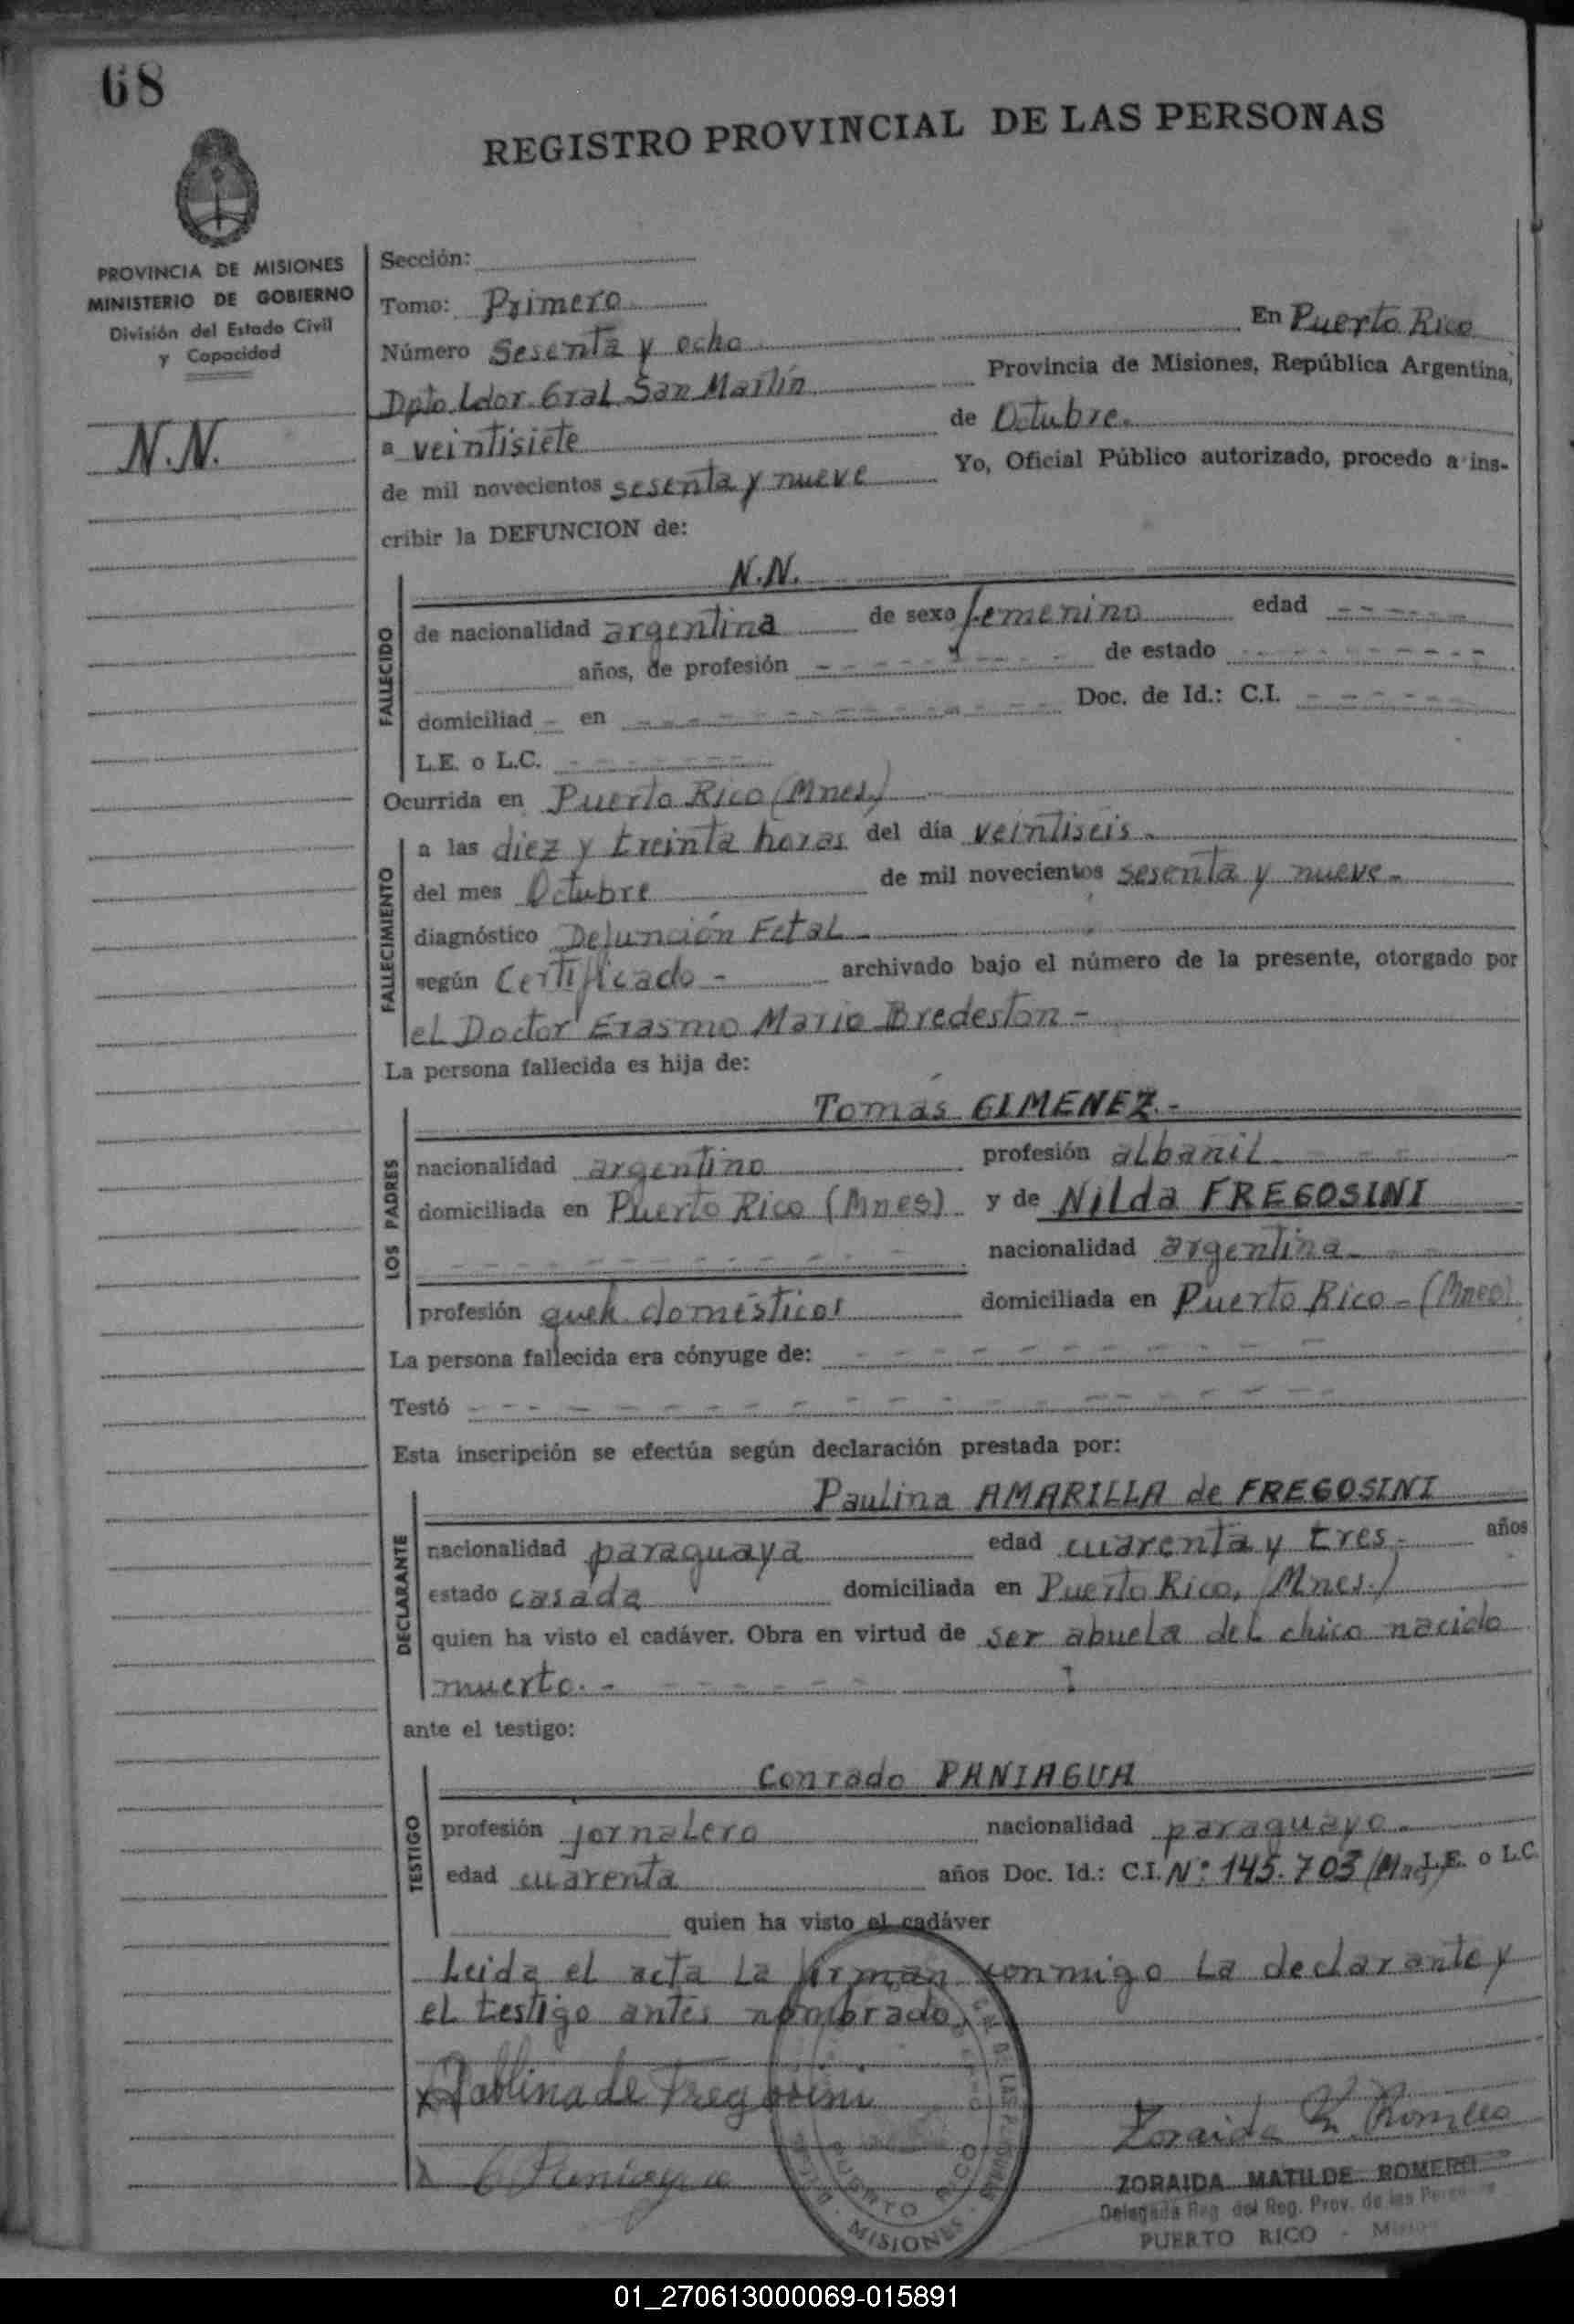 68
REGISTRO PROVINCIAL DE LAS PERSONAS
PROVINCIA DE MISIONES
MINISTERIO DE GOBIERNO
División del Estado Civil
y Capacidad
N.N.
Sección:
Tomo: Primero
Número Sesenta y ocho En Puerto Rico
Dpto. Ldor. Gral. San Martín Provincia de Misiones, República Argentina,
a veintisiete de Octubre.
de mil novecientos sesenta y nueve Yo, Oficial Público autorizado, procedo a ins-
cribir la DEFUNCION de:
N.N.
FALLECIDO
de nacionalidad argentina de sexo femenino edad - - - - - -
años, de profesión - - - - - - - - de estado - - - - - - - - -
domiciliad - en - - - - - - - - - - - Doc. de Id.: C.I. - - - - - -
L.E. o L.C. - - - - - - -
Ocurrida en Puerto Rico (Mnes.)
FALLECIMIENTO
a las diez y treinta horas del día veintiseis.
del mes Octubre de mil novecientos sesenta y nueve.-
diagnóstico Defunción Fetal -
según Certificado - archivado bajo el número de la presente, otorgado por
el Doctor Erasmo Mario Bredeston -
La persona fallecida es hija de:
Tomás GIMENEZ.-
LOS PADRES
nacionalidad argentino profesión albañil - - - -
domiciliada en Puerto Rico (Mnes) y de Nilda FREGOSINI
- - - - - - - - - - nacionalidad argentina - - -
profesión queh. domésticos domiciliada en Puerto Rico - (Mnes)
La persona fallecida era cónyuge de: - - - - - - - - - -
Testó - - - - - - - - - - - - - - - -
Esta inscripción se efectúa según declaración prestada por:
Paulina AMARILLA de FREGOSINI
DECLARANTE
nacionalidad paraguaya edad cuarenta y tres - años
estado casada domiciliada en Puerto Rico, (Mnes.)
quien ha visto el cadáver. Obra en virtud de ser abuela del chico nacido
muerto.- - - - - - -
ante el testigo:
Conrado PANIAGUA
TESTIGO
profesión jornalero nacionalidad paraguayo.
edad cuarenta años Doc. Id.: C.I. Nº 145.703 (Mnes) L.E. o L.C.
quien ha visto el cadáver
Leida el acta la firman conmigo la declarante y
el testigo antes nombrado.
x Pablina de Fregosini
x C Paniagua
Zoraida M. Romero
ZORAIDA MATILDE ROMERO
Delegada Reg. del Reg. Prov. de las Personas
PUERTO RICO - Misiones
PUERTO RICO
MISIONES
01_270613000069-015891